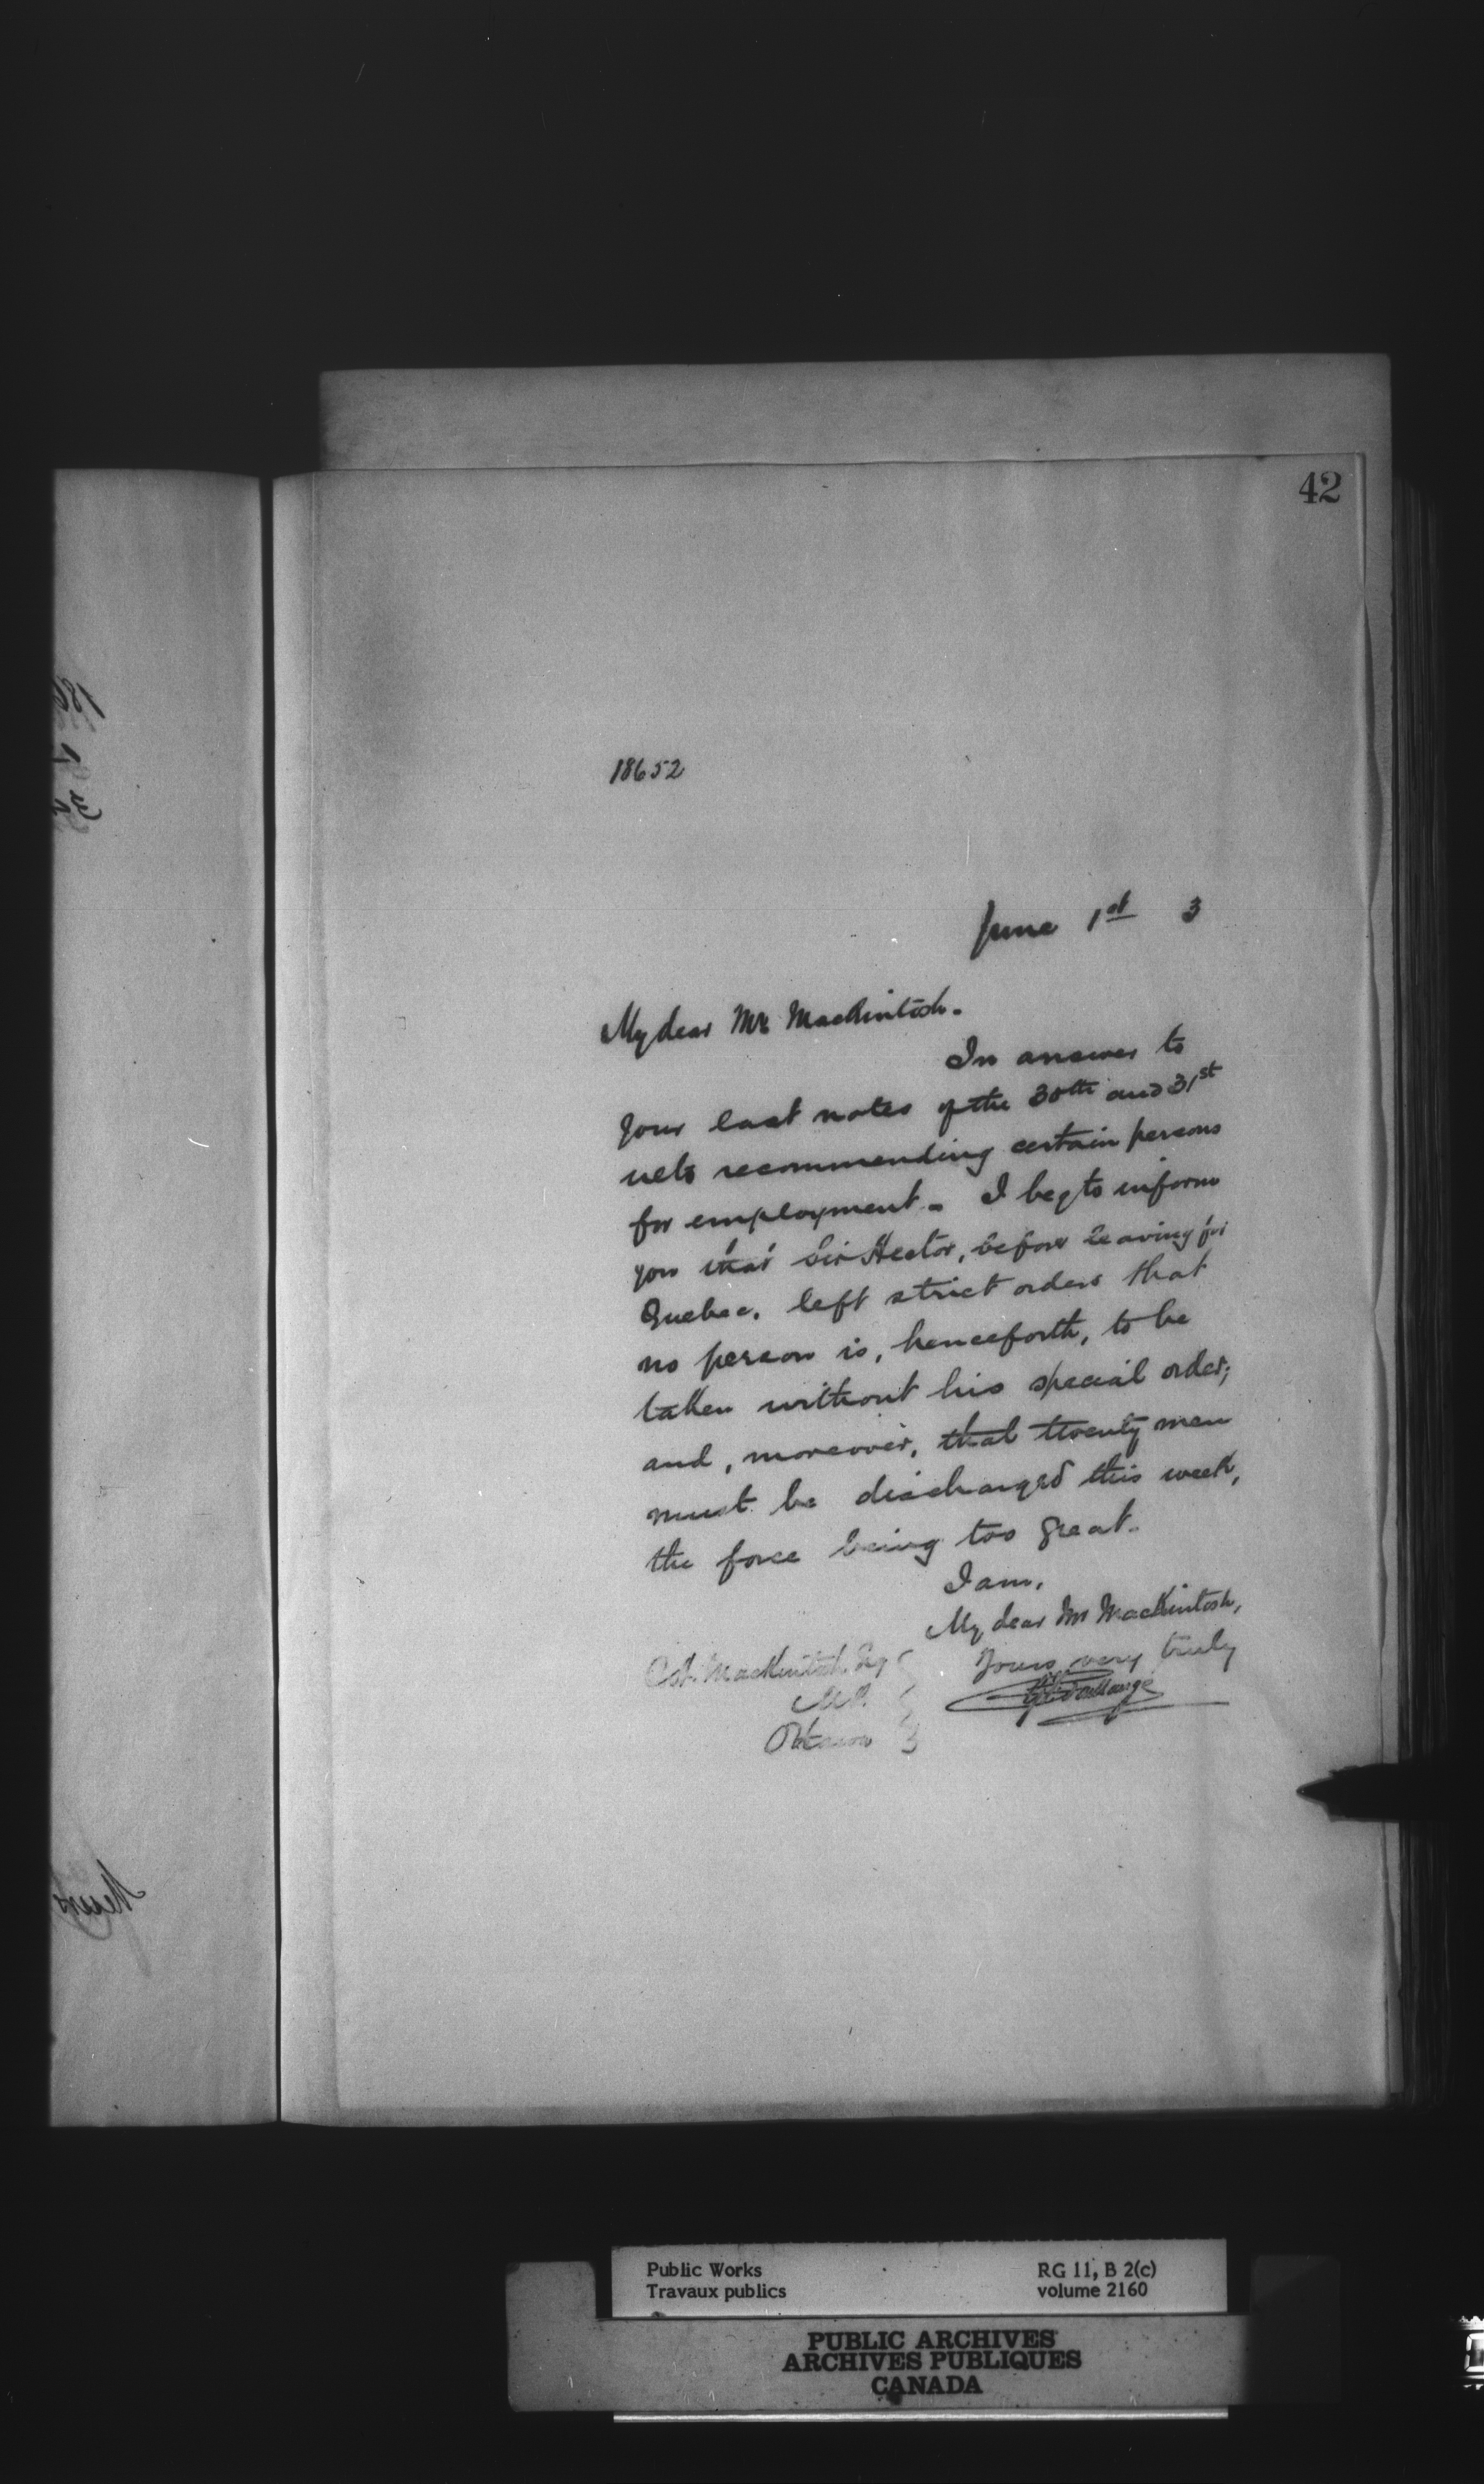 42
18652
June 1st 3
My dear Mr. MacKintosh.
In answer to
your last notes of the 30th and 31st
ulto recommending certain persons
for employment. I beg to inform
you that Sir Hector, before leaving for
Quebec, left strict orders that
no person is, henceforth, to be
taken without his special order;
and, moreover, that twenty men
must be discharged this week,
the force being too great.
I am,
My dear Mr MacKintosh,
Yours very truly
MacKintosh Esq
M.P.
Ottawa
Public Works
Travaux publics
RG 11, B 2(c)
volume 2160
PUBLIC ARCHIVES
ARCHIVES PUBLIQUES
CANADA